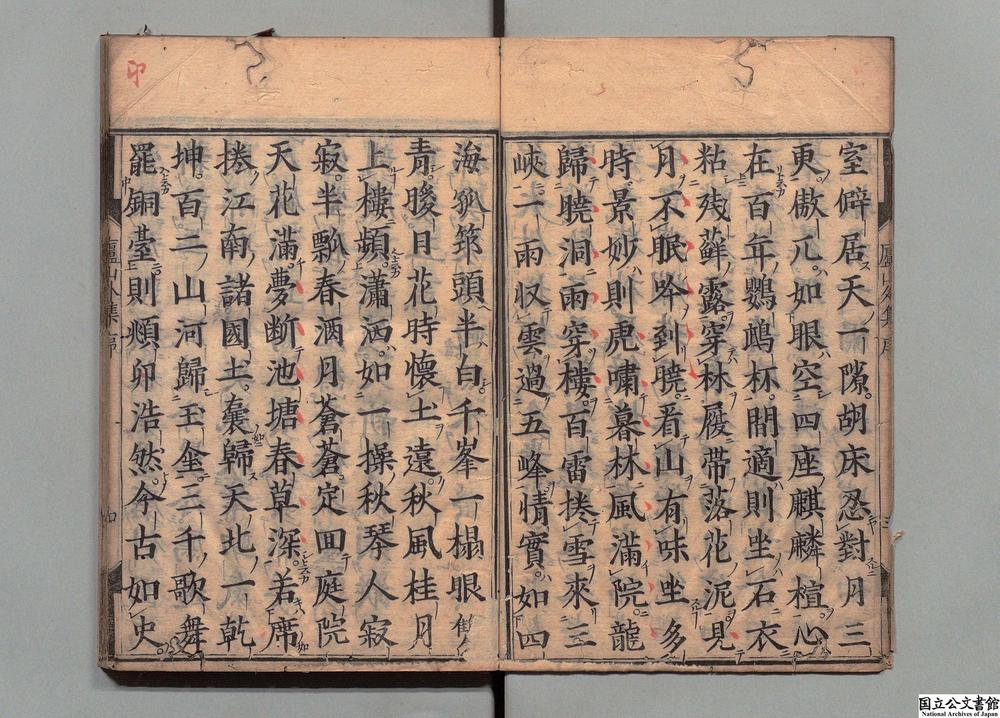 室僻居天一隙胡床忍對月三
更傲兀如眼空四座麒麟楦心
在百年鸚鵡杯閒適則坐石衣
粘残蘚露穿林屐帶落花泥見
月不眠吟到曉看山有味坐多
時景妙則虎嘯暮林風滿院龍
歸曉洞雨穿樓百雷捲雪來三
峽一雨収雲過五峰情實如四
海孤筇頭半白千峯一榻眼
青晙日花時懷土遠秋風桂月
上樓頻瀟洒如一操秋琴人寂
寂半瓢春酒月蒼蒼定回庭院
天花滿夢断池塘春草深若席
捲江南諸國土囊歸天北一乾
坤百二山河歸玉㘴三千歌舞
罷銅臺則熲卯浩然今古如史
印
國立公文書館
National Archives of Japan